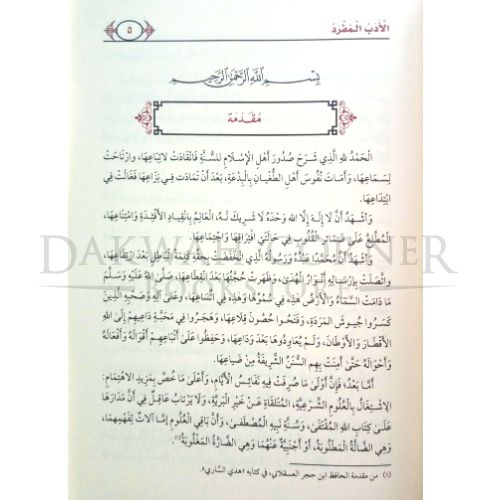 الْأَدَبُ الْمُفْرَدُ
٥
بِسْمِ اللَّهِ الرَّحْمَنِ الرَّحِيمِ
مُقَدِّمَة
الْحَمْدُ للهِ الَّذِي شَرَحَ صُدُورَ أَهْلِ الْإِسْلَامِ لِلسُّنَّةِ فَانْقَادَتْ لِاتِّبَاعِهَا، وَارْتَاحَتْ
لِسَمَاعِهَا، وَأَمَاتَ نُفُوسَ أَهْلِ الطُّغْيَانِ بِالْبِدْعَةِ، بَعْدَ أَنْ تَمَادَتْ فِي نِزَاعِهَا وَتَغَالَتْ فِي
ابْتِدَاعِهَا.
وَأَشْهَدُ أَنْ لَا إِلَهَ إِلَّا اللهُ وَحْدَهُ لَا شَرِيكَ لَهُ، الْعَالِمُ بِانْقِيَادِ الْأَفْئِدَةِ وَامْتِنَاعِهَا،
الْمُطَّلِعُ عَلَى ضَمَائِرِ الْقُلُوبِ فِي حَالَتَيِ افْتِرَاقِهَا وَاجْتِمَاعِهَا.
وَأَشْهَدُ أَنَّ مُحَمَّدًا عَبْدُهُ وَرَسُولُهُ الَّذِي انْخَفَضَتْ بِحَقِّهِ كَلِمَةُ الْبَاطِلِ بَعْدَ ارْتِفَاعِهَا،
وَاتَّصَلَتْ بِإِرْسَالِهِ أَنْوَارُ الْهُدَى، وَظَهَرَتْ حُجَّتُهَا بَعْدَ انْقِطَاعِهَا، صَلَّى اللهُ عَلَيْهِ وَسَلَّمَ
مَا دَامَتِ السَّمَاءُ وَالْأَرْضُ هَذِهِ فِي سُمُوِّهَا وَهَذِهِ فِي اتِّسَاعِهَا، وَعَلَى آلِهِ وَصَحْبِهِ الَّذِينَ
كَسَرُوا جُيُوشَ الْمَرَدَةِ، وَفَتَحُوا حُصُونَ قِلَاعِهَا، وَهَجَرُوا فِي مَحَبَّةِ دَاعِيهِمْ إِلَى اللهِ
الْأَقْطَارَ وَالْأَوْطَانَ، وَلَمْ يُعَاوِدُوهَا بَعْدَ وَدَاعِهَا، وَحَفِظُوا عَلَى أَتْبَاعِهِمْ أَقْوَالَهُ وَأَفْعَالَهُ
وَأَحْوَالَهُ حَتَّى أَمِنَتْ بِهِمُ السُّنَنُ الشَّرِيفَةُ مِنْ ضَيَاعِهَا.
أَمَّا بَعْدُ؛ فَإِنَّ أَوْلَى مَا صُرِفَتْ فِيهِ نَفَائِسُ الْأَيَّامِ، وَأَعْلَى مَا خُصَّ بِمَزِيدِ الِاهْتِمَامِ:
الِاشْتِغَالُ بِالْعُلُومِ الشَّرْعِيَّةِ، الْمُتَلَقَّاةِ عَنْ خَيْرِ الْبَرِيَّةِ، وَلَا يَرْتَابُ عَاقِلٌ فِي أَنَّ مَدَارَهَا
عَلَى كِتَابِ اللهِ الْمُقْتَفَى، وَسُنَّةِ نَبِيِّهِ الْمُصْطَفَى، وَأَنَّ بَاقِيَ الْعُلُومِ إِمَّا آلَاتٌ لِفَهْمِهِمَا،
وَهِيَ الضَّالَّةُ الْمَطْلُوبَةُ، أَوْ أَجْنَبِيَّةٌ عَنْهُمَا وَهِيَ الضَّارَّةُ الْمَغْلُوبَةُ(١)
(١) من مقدمة الحافظ ابن حجر العسقلاني، في كتابه «هدي الساري».
DAKWAH CORNER
BOOKSTORE